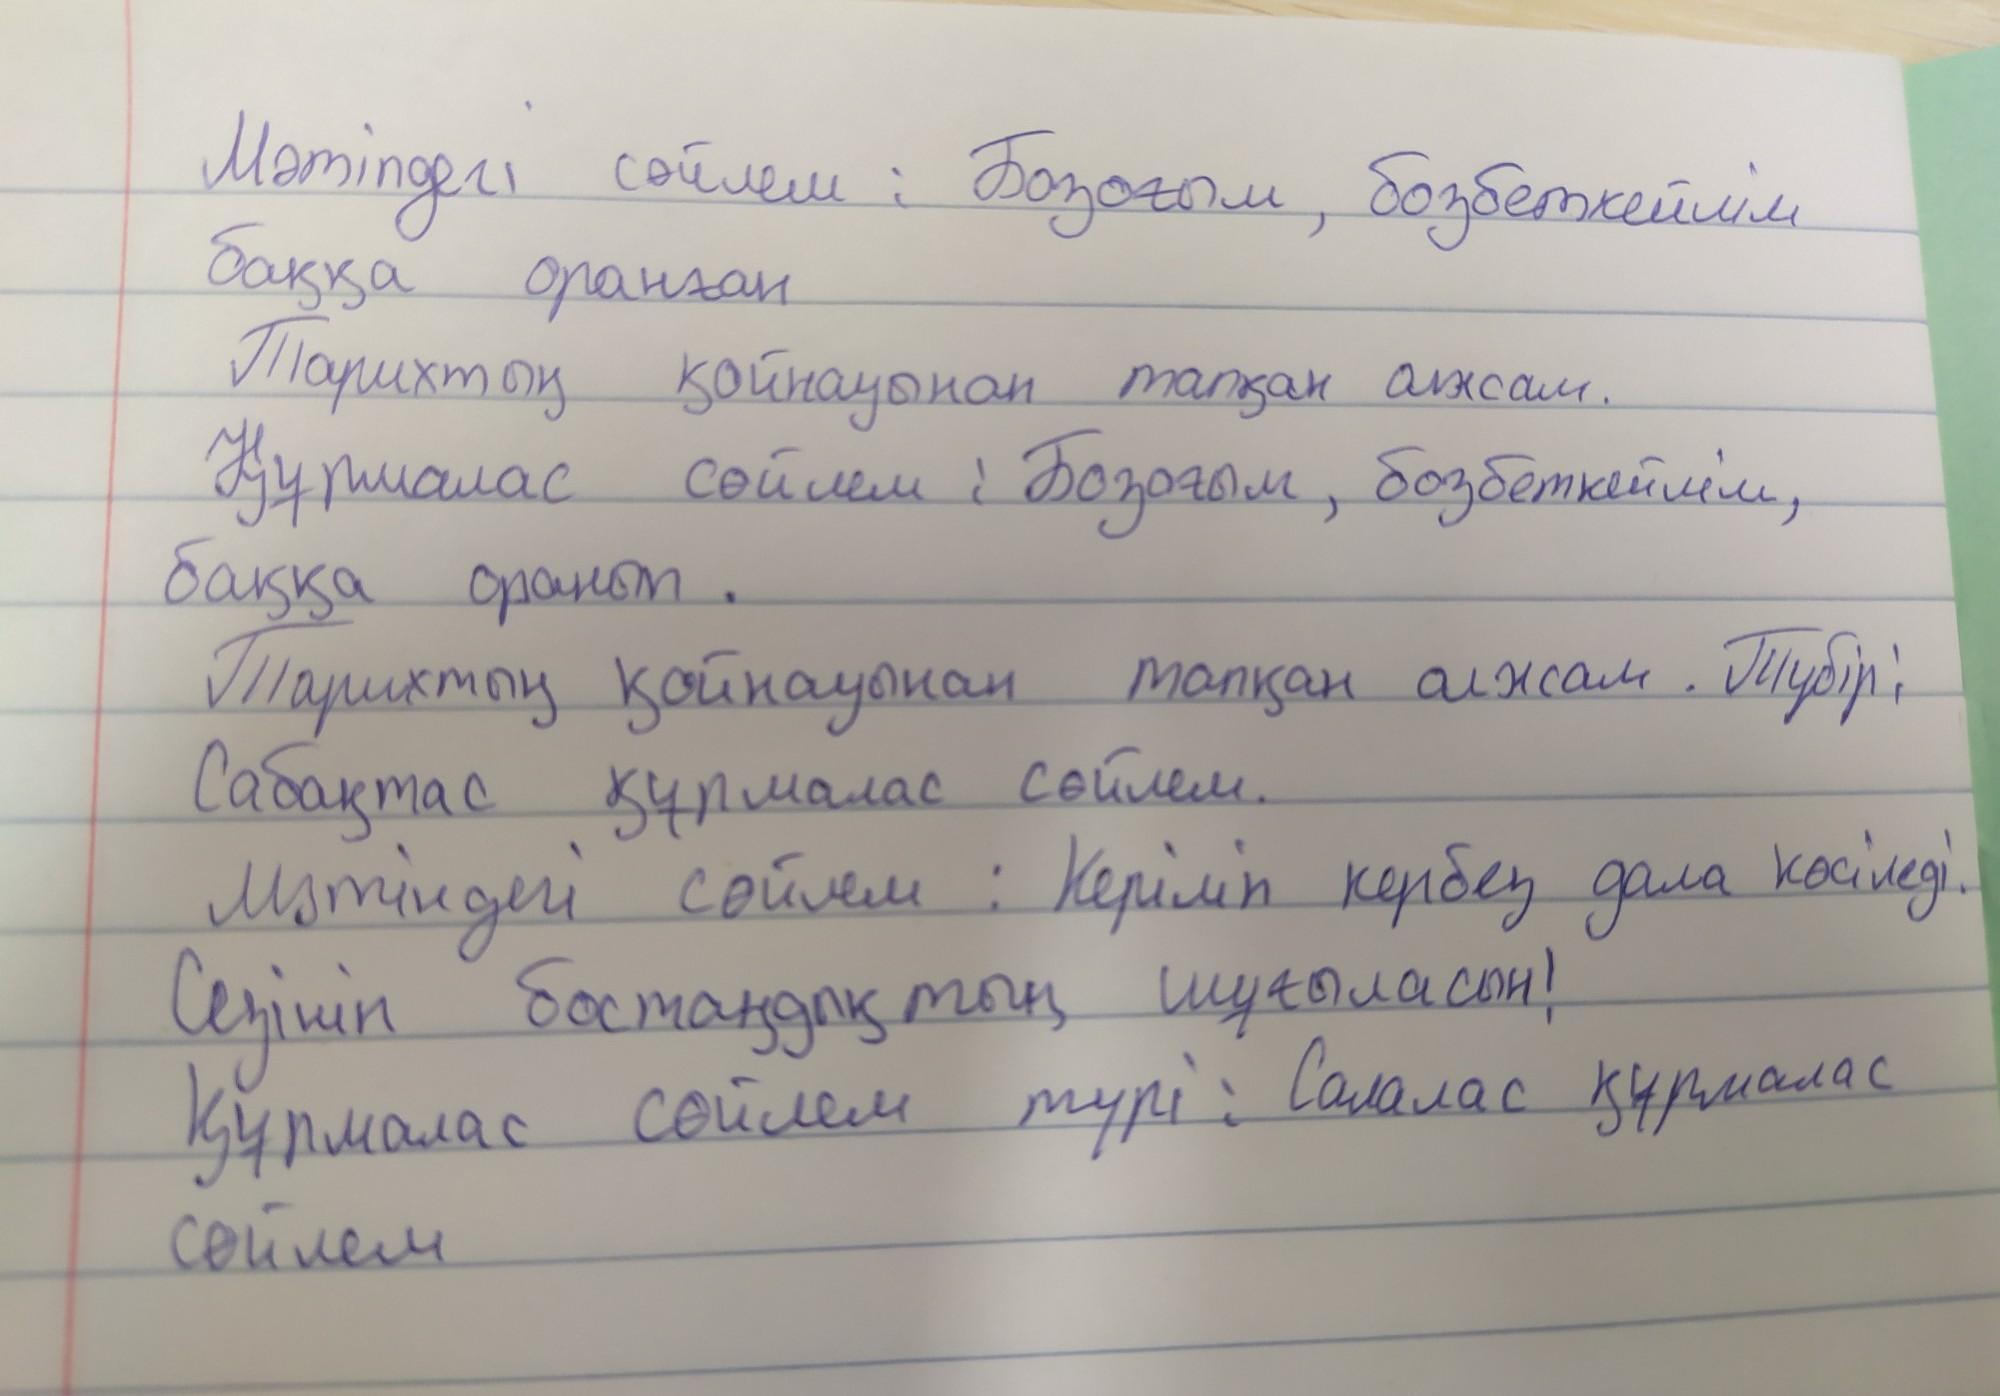 Мәтіндегі сөйлем: Бозоғым, бозбеткейлім
баққа оранған
Тарихтың қойнауынан тапқан алжсам.
Құрмалас сөйлем: Бозоғым, бозбеткейлім,
баққа оранып.
Тарихтың қойнауынан тапқан алжсам. Түбір:
Сабақтас құрмалас сөйлем.
Мәтіндегі сөйлем: Керіліп кербез дала көсіледі.
Сезініп бостаңдықтың шұғыласын!
Құрмалас сөйлем түрі: Салалас құрмалас
сөйлем